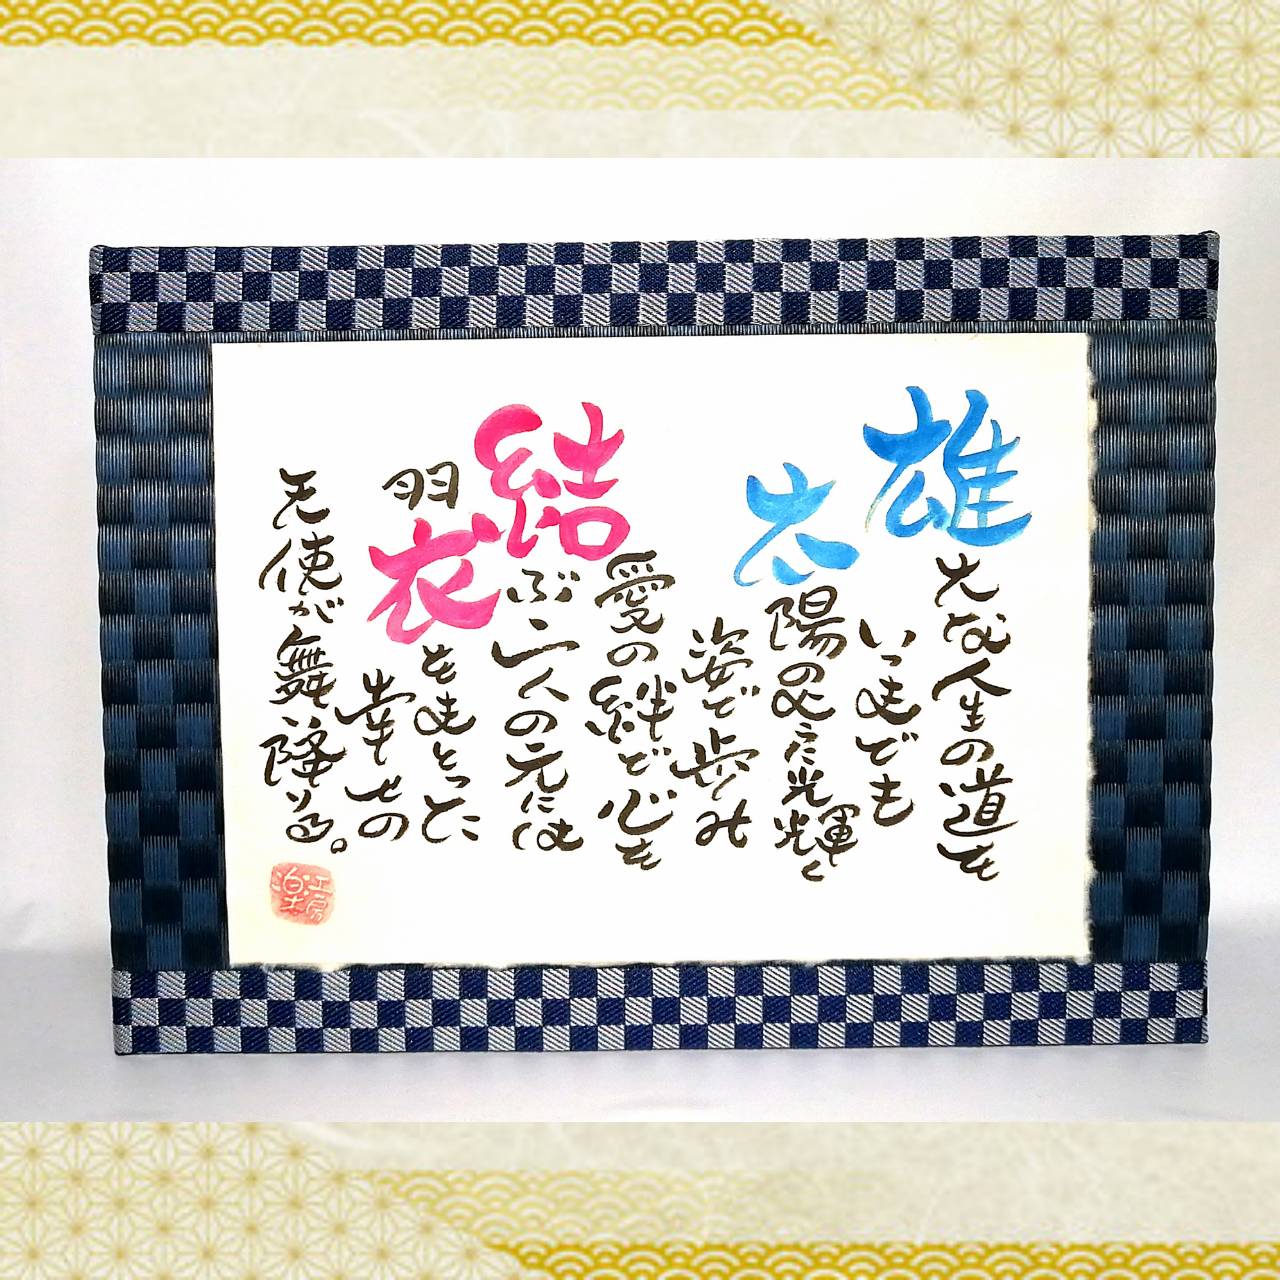 雄大な人生の道を
いつまでも
太陽のように光輝く
姿で歩み
愛の絆で心を
結ぶ二人の元には
羽衣をまとった
幸せの
天使が舞い降りる。
工房
楽